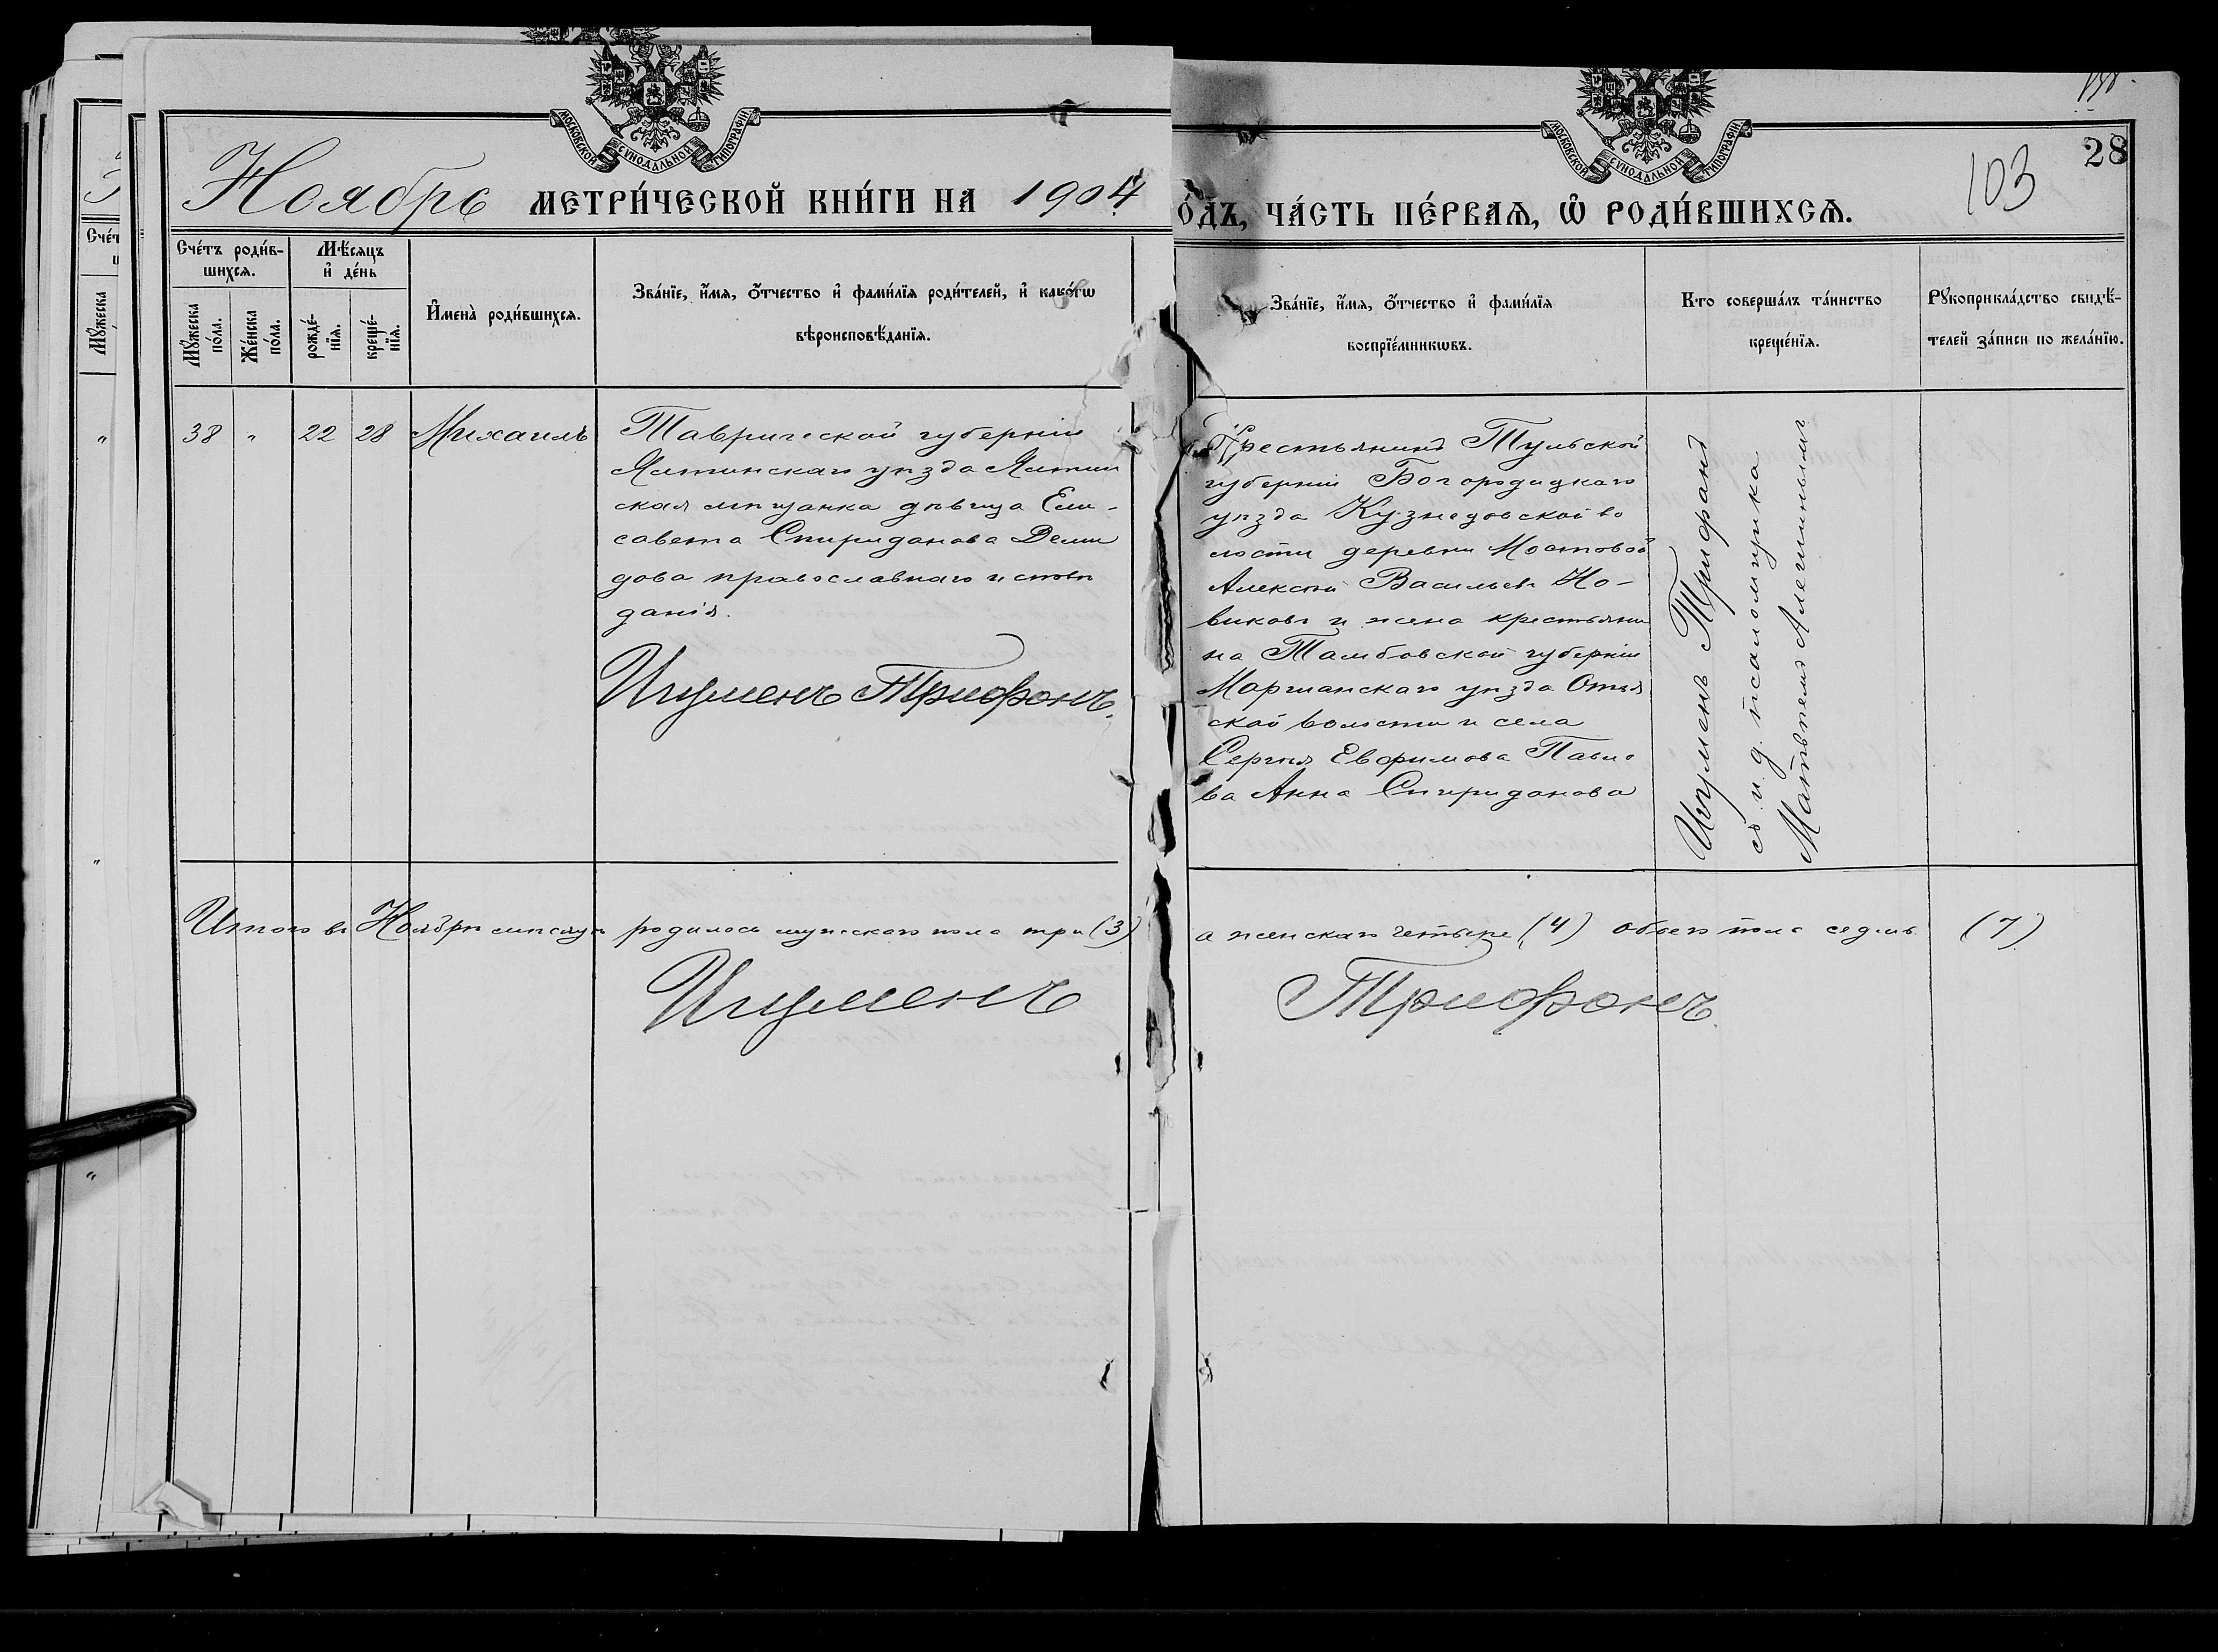 МОСКОВСКОЙ СѴНОДАЛЬНОЙ ТИПОГРАФІИ
МОСКОВСКОЙ СѴНОДАЛЬНОЙ ТИПОГРАФІИ
28
103
Ноябрь МЕТРИ́ЧЕСКОЙ КНИ́ГИ НА 1904
О́ДЪ, ЧА́СТЬ ПЕ́РВАЯ, Ѡ҆ РОДИ́ВШИХСЯ.
Сче́тъ роди́в-
шихся.
Му́жеска по́ла.
Же́нска по́ла.
Мѣ́сяцъ
и҆ де́нь
рожде́-
нїя.
креще́-
нїя.
И҆мена̀ роди́вшихся.
Зва́нїе, и҆́мя, ѻ҆́тчество и҆ фами́лїя роди́телей, и҆ како́гѡ
вѣроисповѣ́данїя.
Зва́нїе, и҆́мя, ѻ҆́тчество и҆ фами́лїя
воспрїе́мникѡвъ.
Кто соверша́лъ та́инство
креще́нїя.
Рꙋкоприкла́дство свидѣ́-
телей за́писи по жела́нїю.
38 " 22 28 Михаилъ
Таврической губерніи
Ялтинскаго уѣзда Ялтин
ская мѣщанка дѣвица Ели-
савета Спиридонова Деми
дова православнаго исповѣ
данія.
Игуменъ Трифонъ.
Крестьянинъ Тульской
губерніи Богородицкаго
уѣзда Кузнедовской во
лости деревни Мостовой
Алексѣй Васильевъ Но-
виковъ и жена крестьяни
на Тамбовской губерніи
Моршанскаго уѣзда
ской волости и села
Сергѣя Евфимова Павло
ва Анна Спиридонова
Игуменъ Трифонъ
съ и. д. псаломщика
Матвѣемъ
Итого въ Ноябрѣ мѣсяцѣ родилось мужескаго пола три (3)
а женскаго четыре (4) обоего пола седмь (7)
Игуменъ Трифонъ.